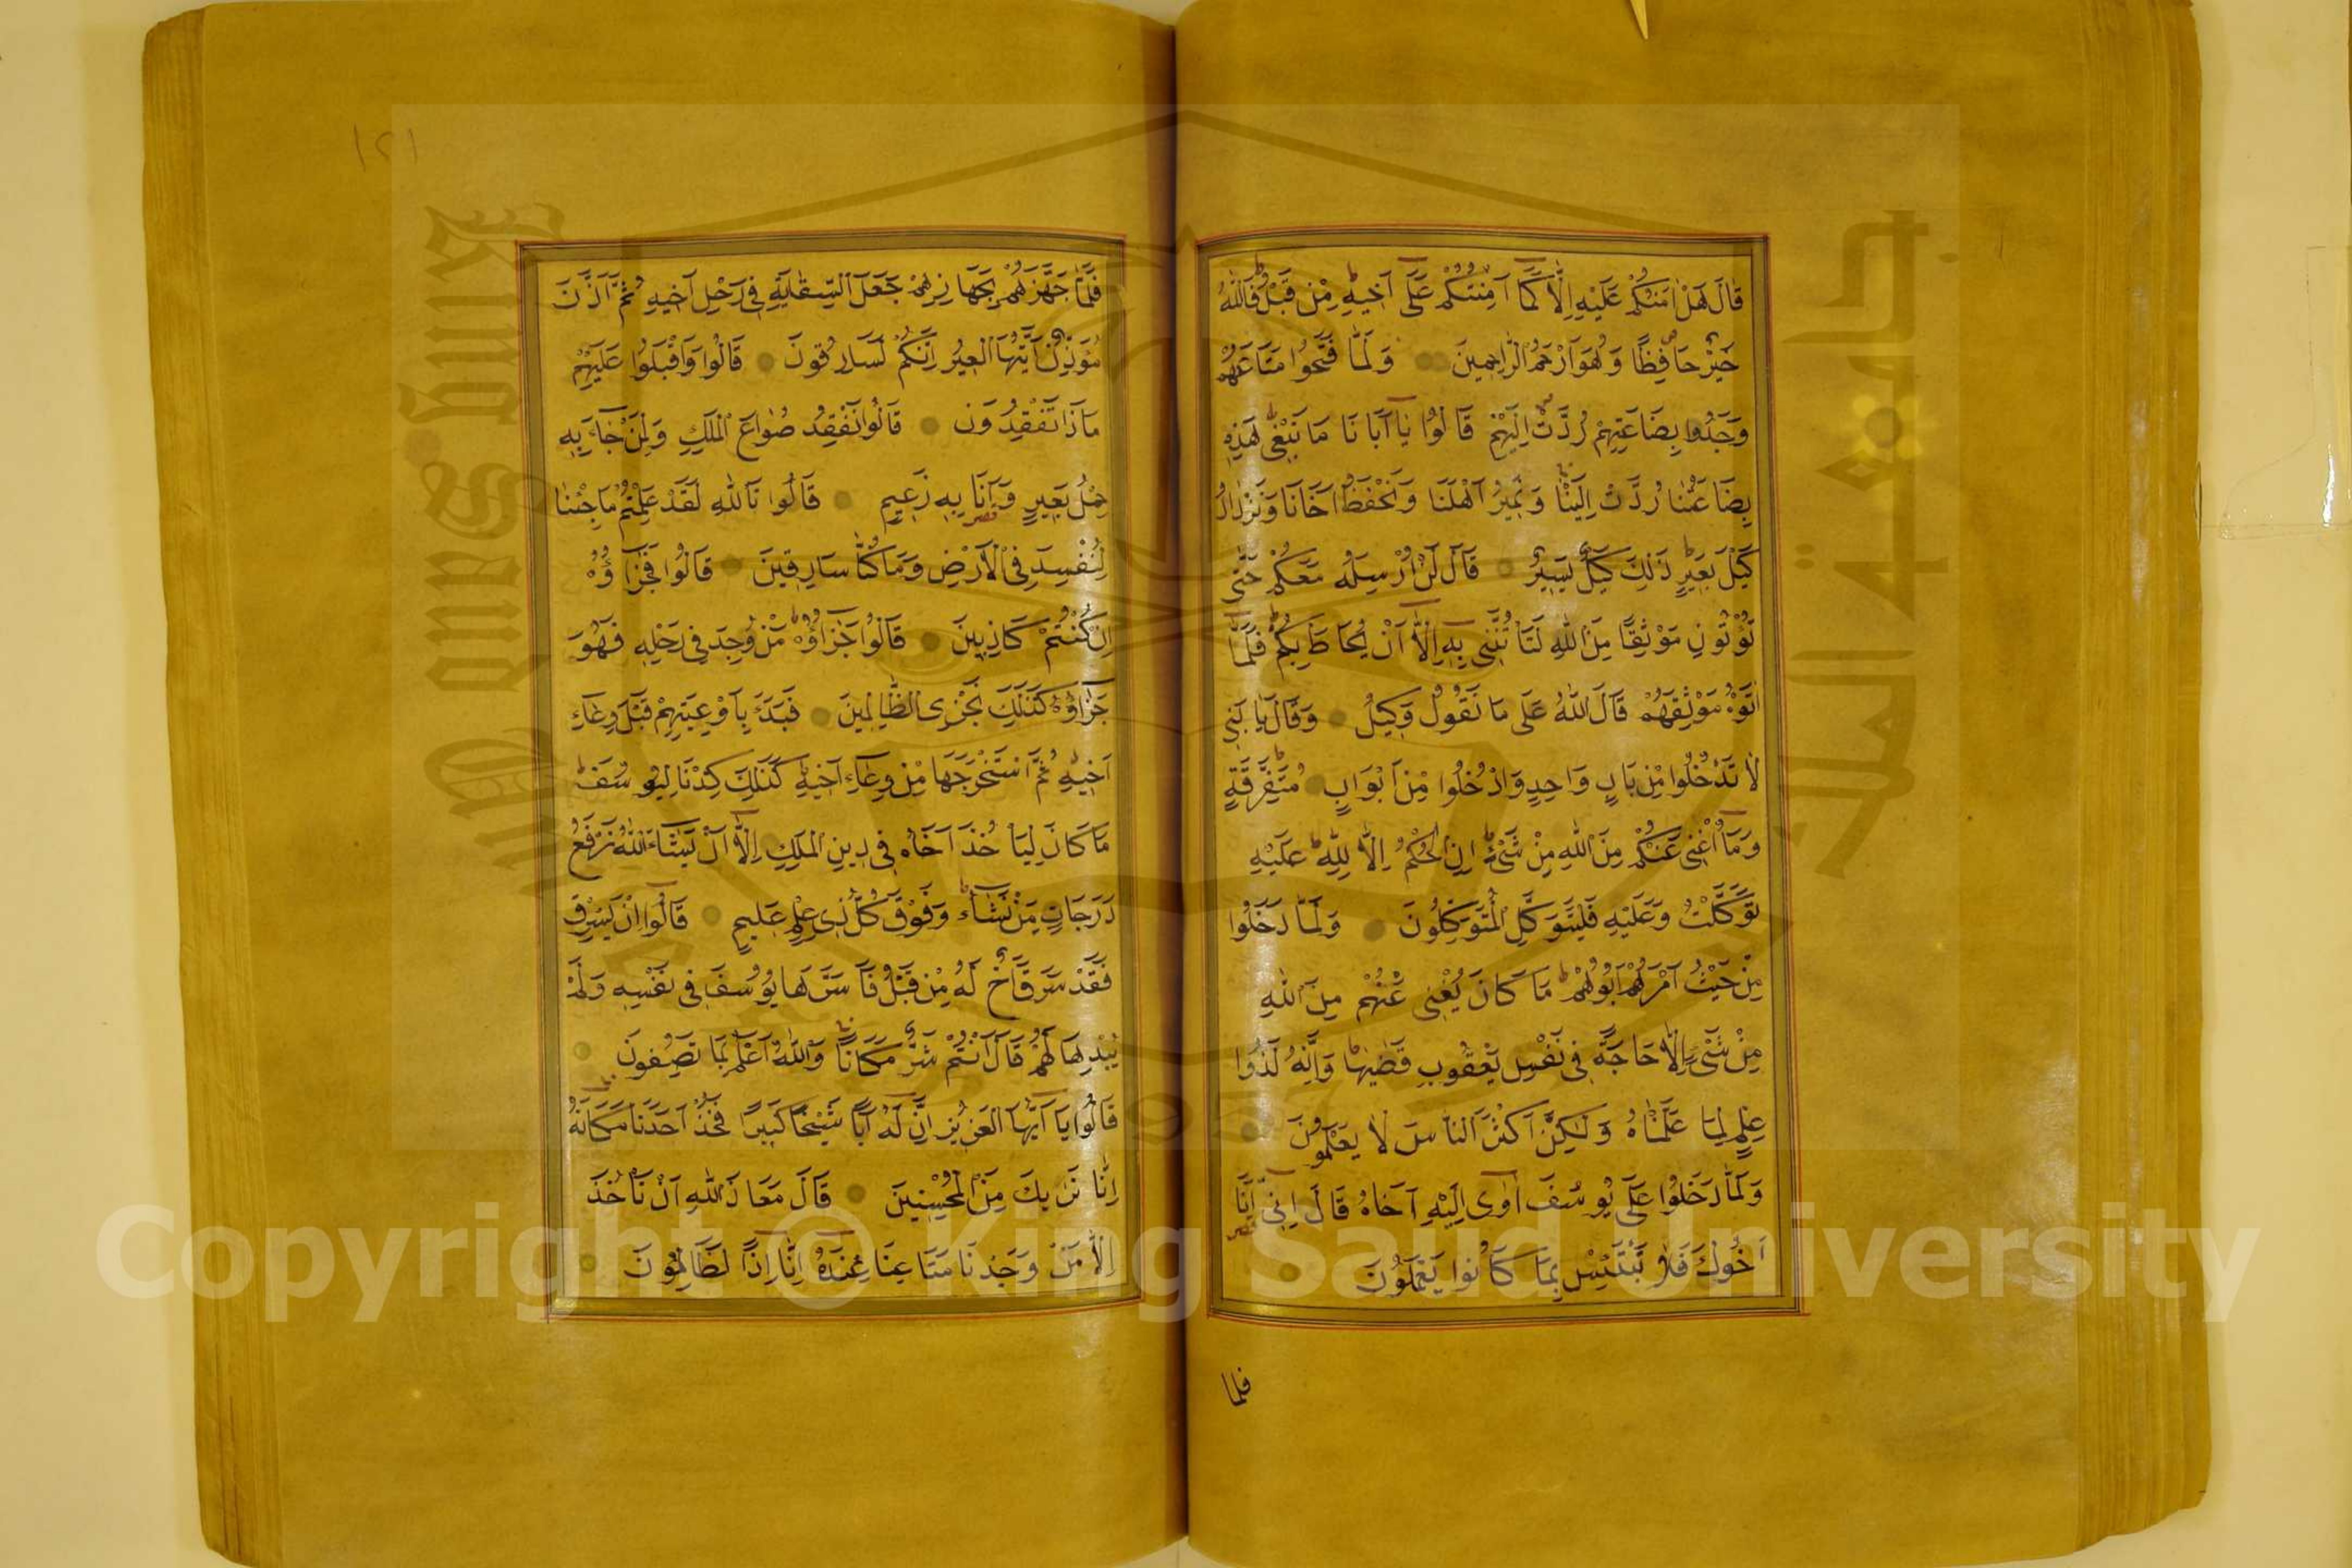 قَالَ هَلْ اٰمَنُكُمْ عَلَيْهِ اِلَّا كَمَآ اَمِنْتُكُمْ عَلٰٓى اَخِيهِ مِنْ قَبْلُ فَاللّٰهُ
خَيْرٌ حَافِظًا وَهُوَ اَرْحَمُ الرَّاحِمِينَ وَلَمَّا فَتَحُوا مَتَاعَهُمْ
وَجَدُوا بِضَاعَتَهُمْ رُدَّتْ اِلَيْهِمْ قَالُوا يَآ اَبَانَا مَا نَبْغِى هٰذِهِ
بِضَاعَتُنَا رُدَّتْ اِلَيْنَا وَنَمِيرُ اَهْلَنَا وَنَحْفَظُ اَخَانَا وَنَزْدَادُ
كَيْلَ بَعِيرٍ ذٰلِكَ كَيْلٌ يَسِيرٌ قَالَ لَنْ اُرْسِلَهُ مَعَكُمْ حَتّٰى
تُؤْتُونِ مَوْثِقًا مِنَ اللّٰهِ لَتَأْتُنَّنِى بِهِٓ اِلَّآ اَنْ يُحَاطَ بِكُمْ فَلَمَّآ
اٰتَوْهُ مَوْثِقَهُمْ قَالَ اللّٰهُ عَلٰى مَا نَقُولُ وَكِيلٌ وَقَالَ يَا بَنِىَّ
لَا تَدْخُلُوا مِنْ بَابٍ وَاحِدٍ وَادْخُلُوا مِنْ اَبْوَابٍ مُتَفَرِّقَةٍ
وَمَآ اُغْنِى عَنْكُمْ مِنَ اللّٰهِ مِنْ شَىْءٍ اِنِ الْحُكْمُ اِلَّا لِلّٰهِ عَلَيْهِ
تَوَكَّلْتُ وَعَلَيْهِ فَلْيَتَوَكَّلِ الْمُتَوَكِّلُونَ وَلَمَّا دَخَلُوا
مِنْ حَيْثُ اَمَرَهُمْ اَبُوهُمْ مَا كَانَ يُغْنِى عَنْهُمْ مِنَ اللّٰهِ
مِنْ شَىْءٍ اِلَّا حَاجَةً فِى نَفْسِ يَعْقُوبَ قَضٰيهَا وَاِنَّهُ لَذُوا
عِلْمٍ لِمَا عَلَّمْنَاهُ وَلٰكِنَّ اَكْثَرَ النَّاسِ لَا يَعْلَمُونَ
وَلَمَّا دَخَلُوا عَلٰى يُوسُفَ اٰوٰٓى اِلَيْهِ اَخَاهُ قَالَ اِنِّىٓ اَنَا
اَخُوكَ فَلَا تَبْتَئِسْ بِمَا كَانُوا يَعْمَلُونَ
فلما
١٢١
فَلَمَّا جَهَّزَهُمْ بِجَهَازِهِمْ جَعَلَ السِّقَايَةَ فِى رَحْلِ اَخِيهِ ثُمَّ اَذَّنَ
مُؤَذِّنٌ اَيَّتُهَا الْعِيرُ اِنَّكُمْ لَسَارِقُونَ قَالُوا وَاَقْبَلُوا عَلَيْهِمْ
مَاذَا تَفْقِدُونَ قَالُوا نَفْقِدُ صُوَاعَ الْمَلِكِ وَلِمَنْ جَآءَ بِهِ
حِمْلُ بَعِيرٍ وَاَنَا بِهِ زَعِيمٌ قَالُوا تَاللّٰهِ لَقَدْ عَلِمْتُمْ مَا جِئْنَا
لِنُفْسِدَ فِى الْاَرْضِ وَمَا كُنَّا سَارِقِينَ قَالُوا فَمَا جَزَآؤُهُ
اِنْ كُنْتُمْ كَاذِبِينَ قَالُوا جَزَآؤُهُ مَنْ وُجِدَ فِى رَحْلِهِ فَهُوَ
جَزَآؤُهُ كَذٰلِكَ نَجْزِى الظَّالِمِينَ فَبَدَءَ بِاَوْعِيَتِهِمْ قَبْلَ وِعَآءِ
اَخِيهِ ثُمَّ اسْتَخْرَجَهَا مِنْ وِعَآءِ اَخِيهِ كَذٰلِكَ كِدْنَا لِيُوسُفَ
مَا كَانَ لِيَأْخُذَ اَخَاهُ فِى دِينِ الْمَلِكِ اِلَّآ اَنْ يَشَآءَ اللّٰهُ نَرْفَعُ
دَرَجَاتٍ مَنْ نَشَآءُ وَفَوْقَ كُلِّ ذِى عِلْمٍ عَلِيمٌ قَالُوٓا اِنْ يَسْرِقْ
فَقَدْ سَرَقَ اَخٌ لَهُ مِنْ قَبْلُ فَاَسَرَّهَا يُوسُفُ فِى نَفْسِهِ وَلَمْ
يُبْدِهَا لَهُمْ قَالَ اَنْتُمْ شَرٌّ مَكَانًا وَاللّٰهُ اَعْلَمُ بِمَا تَصِفُونَ
قَالُوا يَآ اَيُّهَا الْعَزِيزُ اِنَّ لَهُٓ اَبًا شَيْخًا كَبِيرًا فَخُذْ اَحَدَنَا مَكَانَهُ
اِنَّا نَرٰيكَ مِنَ الْمُحْسِنِينَ قَالَ مَعَاذَ اللّٰهِ اَنْ نَأْخُذَ
اِلَّا مَنْ وَجَدْنَا مَتَاعَنَا عِنْدَهُٓ اِنَّآ اِذًا لَظَالِمُونَ
Copyright © King Saud University